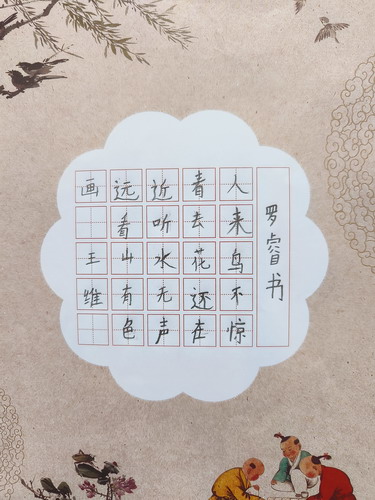 画 王维
远看山有色
近听水无声
春去花还在
人来鸟不惊
罗睿书